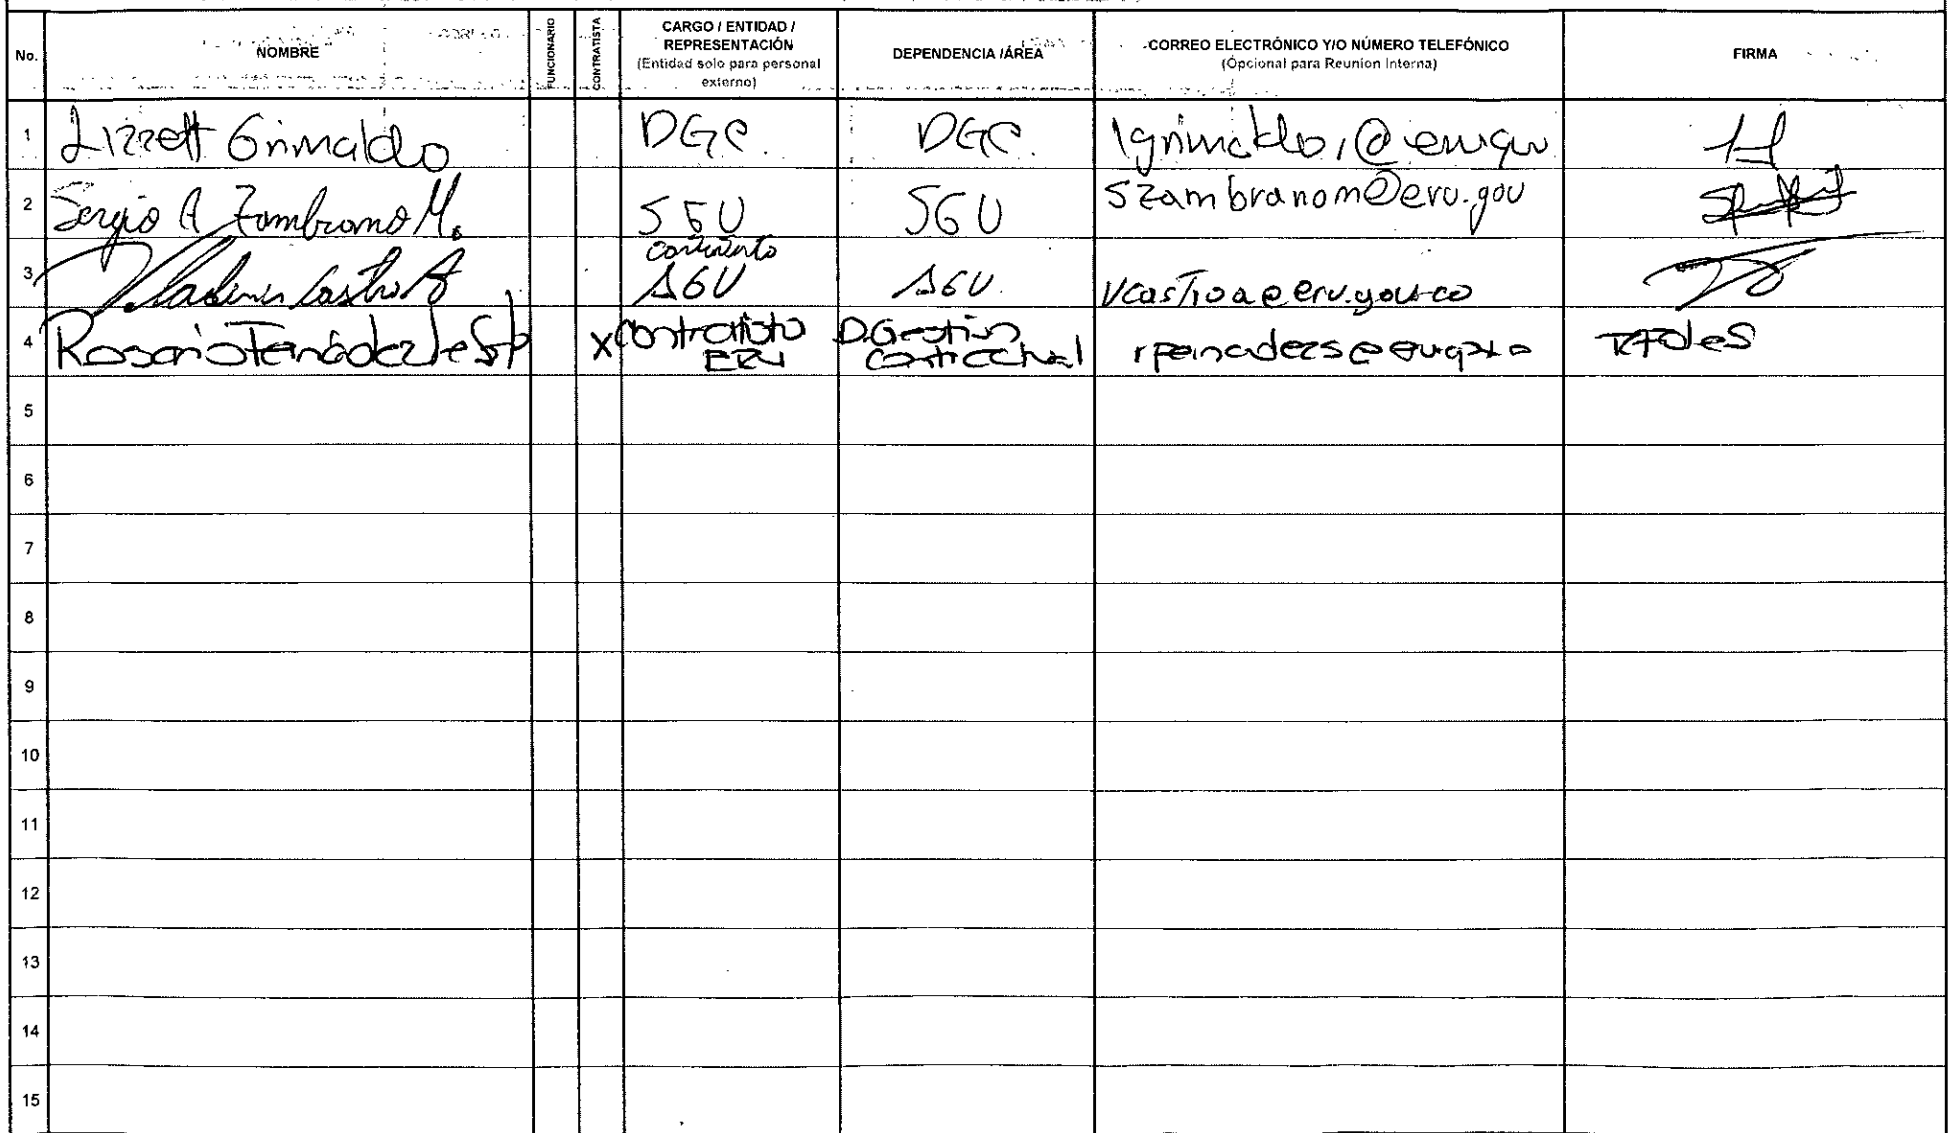 No. NOMBRE FUNCIONARIO CONTRATISTA CARGO / ENTIDAD / REPRESENTACIÓN (Entidad solo para personal externo) DEPENDENCIA /ÁREA CORREO ELECTRÓNICO Y/O NÚMERO TELEFÓNICO (Opcional para Reunion Interna) FIRMA
1 Lizzett Grimaldo DGC. DGC.
2 Sergio A Zambrano M. SGU SGU szambranom@eru.gov
3 Castro SGU SGU. vcastroa@eru.gov.co
4 Rosario Fernández de X Contratista ERU D. Gestión Contractual
5
6
7
8
9
10
11
12
13
14
15